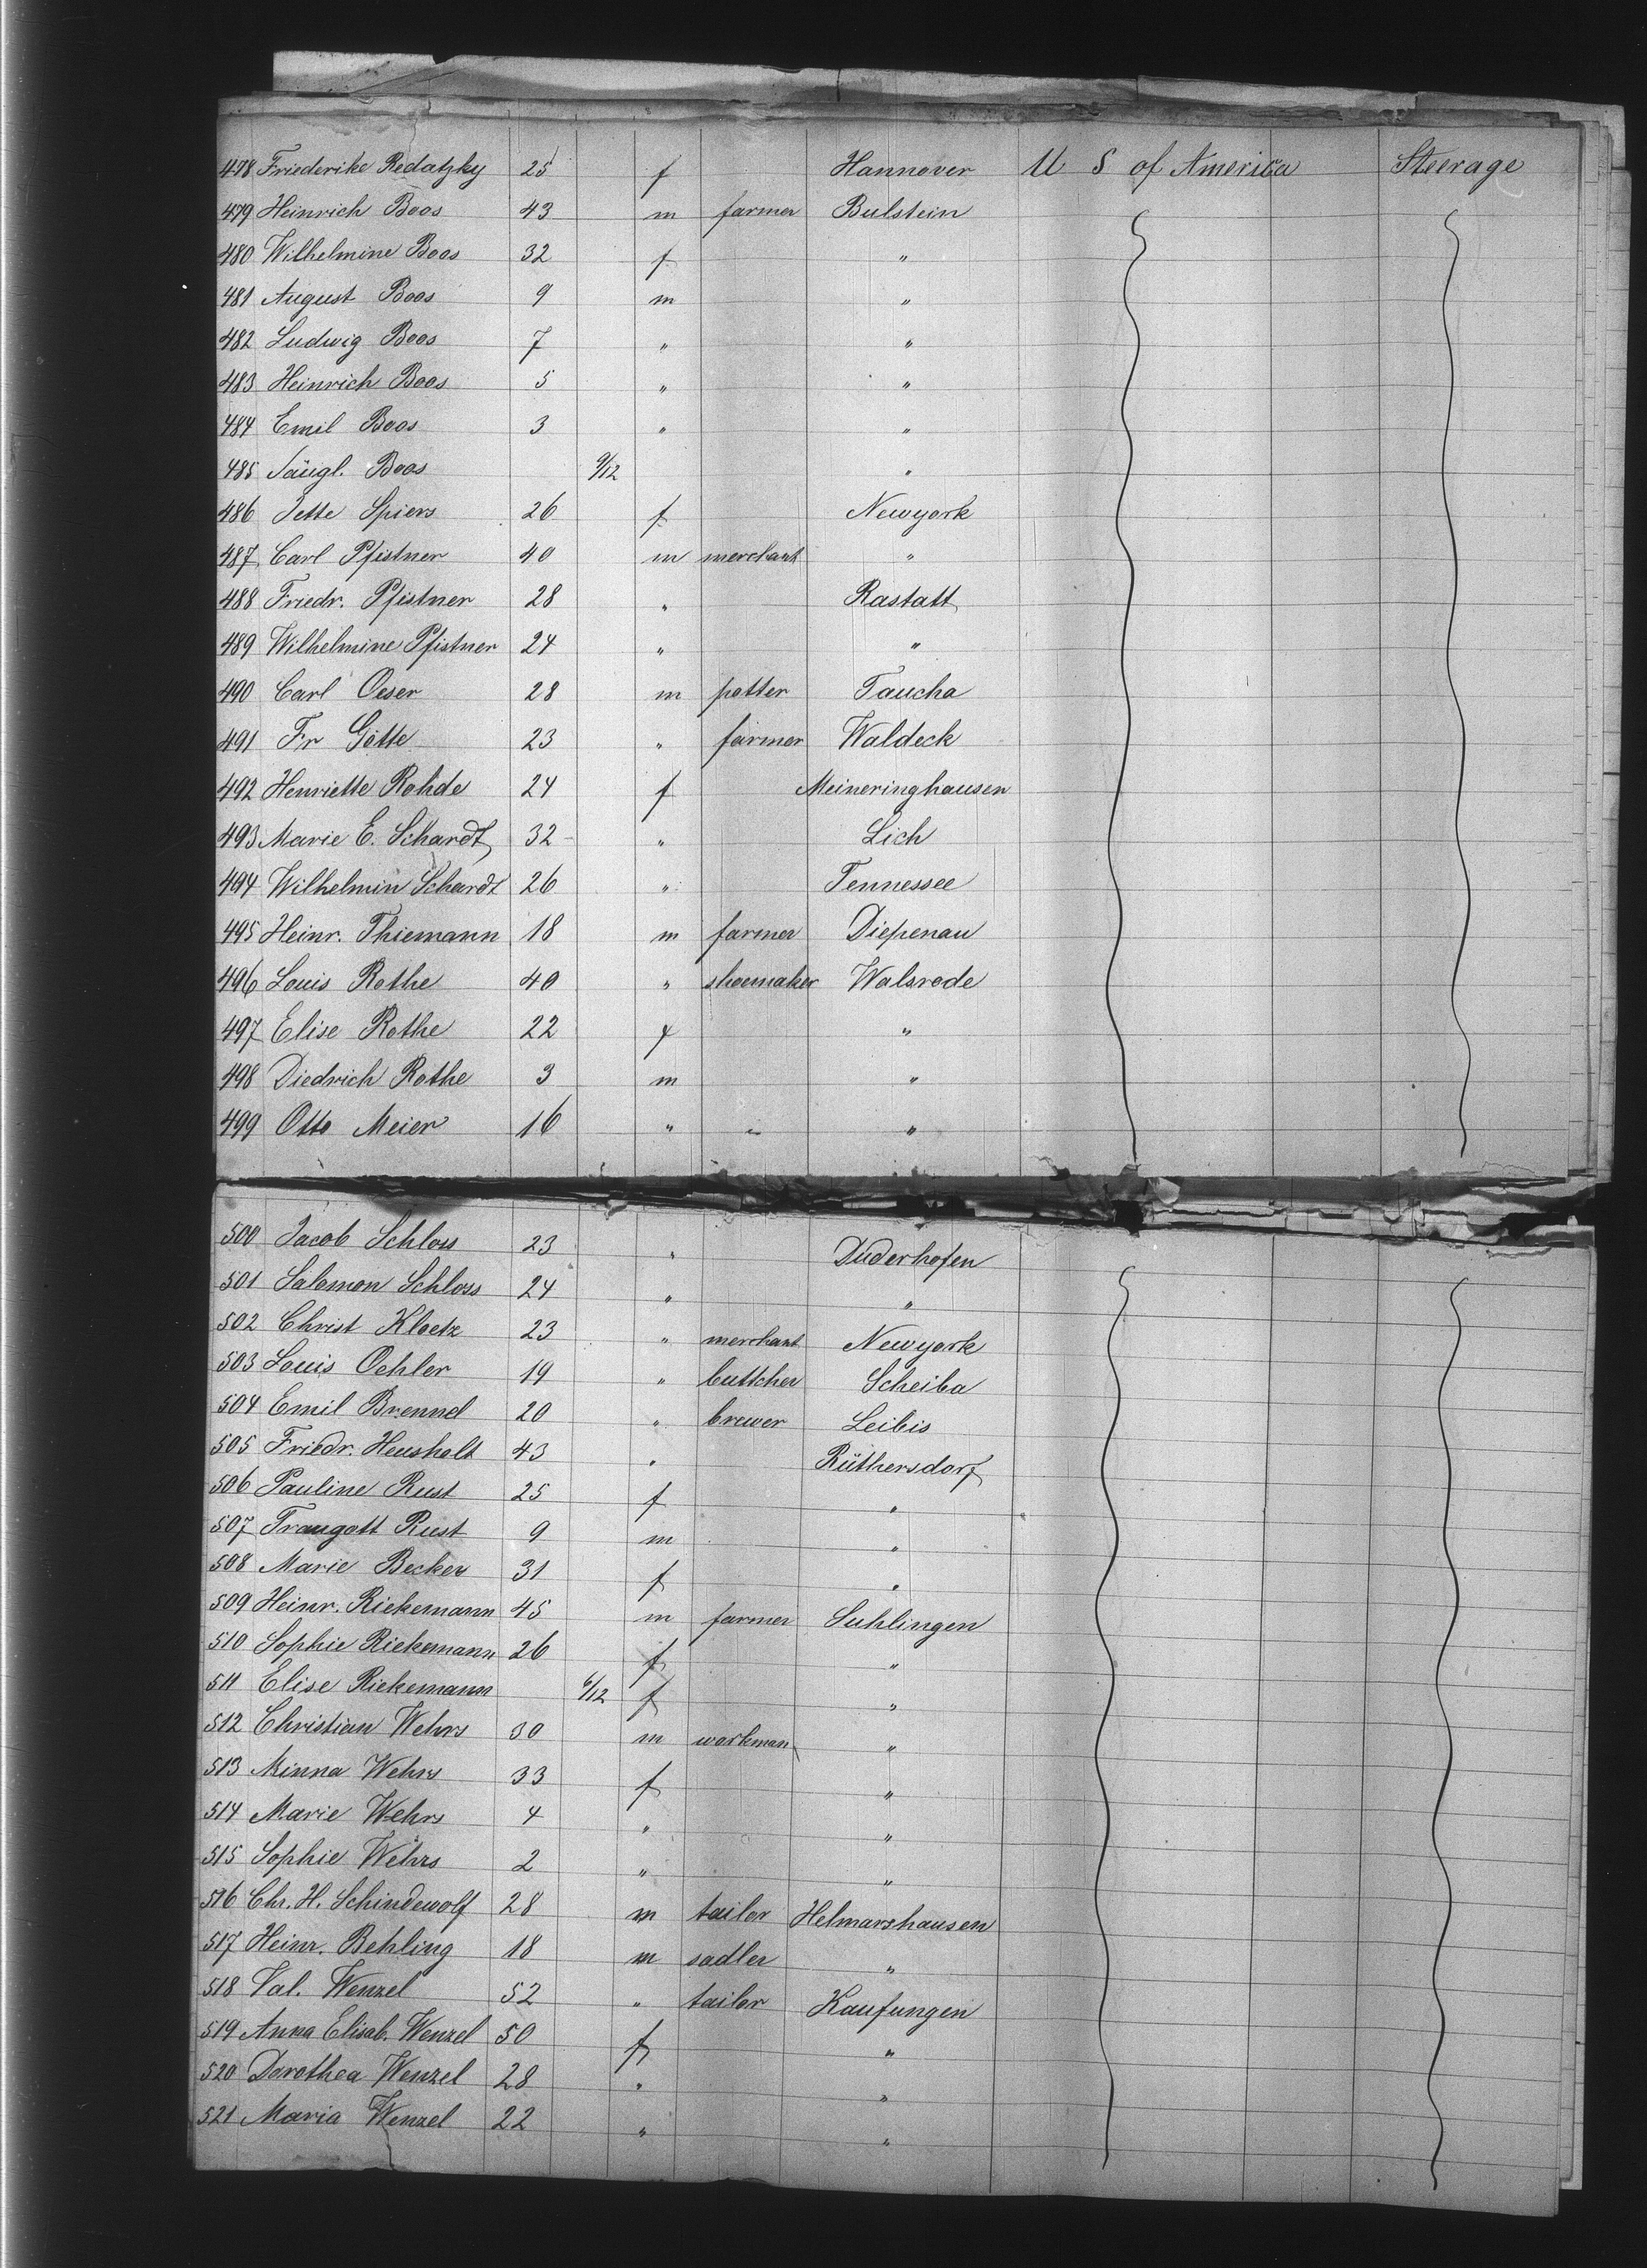 478 Friederike Redatzky 25 f Hannover U S of America Steerage
479 Heinrich Boos 43 m farmer Bulstein
480 Wilhelmine Boos 32 f "
481 August Boos 9 m "
482 Ludwig Boos 7 " "
483 Heinrich Boos 5 " "
484 Emil Boos 3 " "
485 Säugl. Boos 9/12 "
486 Jette Spiers 26 f Newyork
487 Carl Pfistner 40 m merchant "
488 Friedr. Pfistner 28 " Rastatt
489 Wilhelmine Pfistner 24 " "
490 Carl Oeser 28 m potter Taucha
491 Fr Götte 23 " farmer Waldeck
492 Henriette Rohde 24 f Meineringhausen
493 Marie E. Schardt 32 " Lich
494 Wilhelmin Schardt 26 " Tennessee
495 Heinr. Thiemann 18 m farmer Diepenau
496 Louis Rothe 40 " shoemaker Walsrode
497 Elise Rothe 22 f "
498 Diedrich Rothe 3 m "
499 Otto Meier 16 " " "
500 Jacob Schloss 23 " Duderhofen
501 Salomon Schloss 24 " "
502 Christ Kloetz 23 " merchant Newyork
503 Louis Oehler 19 " buttcher Scheiba
504 Emil Brennel 20 " brewer Leibis
505 Friedr. Heusholt 43 " Rüthersdorf
506 Pauline Rust 25 f "
507 Traugott Rust 9 m "
508 Marie Becker 31 f "
509 Heinr. Riekemann 45 m farmer Suhlingen
510 Sophie Riekemann 26 f "
511 Elise Riekemann 6/12 f "
512 Christian Wehrs 30 m workman "
513 Minna Wehrs 33 f "
514 Marie Wehrs 4 " "
515 Sophie Wehrs 2 " "
516 Chr. H. Schindewolf 28 m tailor Helmarshausen
517 Heinr. Behling 18 m sadler "
518 Val. Wenzel 52 " tailor Kaufungen
519 Anna Elisab. Wenzel 50 f "
520 Dorothea Wenzel 28 " "
521 Maria Wenzel 22 " "